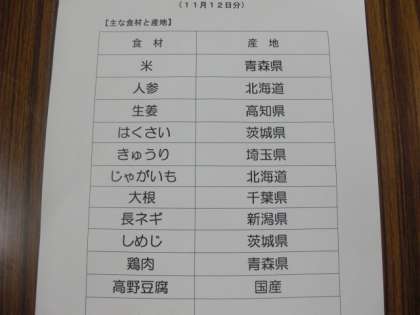 （１１月１２日分）
【主な食材と産地】
食材 産地
米 青森県
人参 北海道
生姜 高知県
はくさい 茨城県
きゅうり 埼玉県
じゃがいも 北海道
大根 千葉県
長ネギ 新潟県
しめじ 茨城県
鶏肉 青森県
高野豆腐 国産